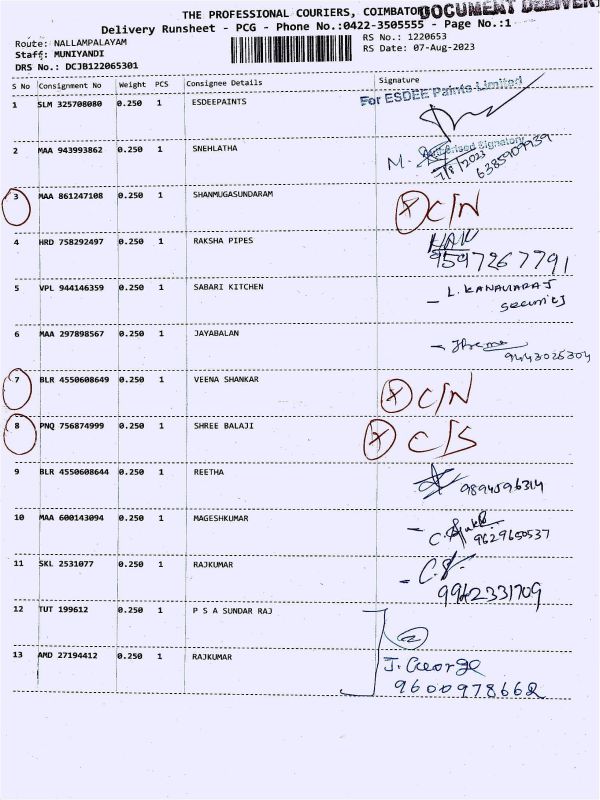 THE PROFESSIONAL COURIERS, COIMBATORE
DOCUMENT DELIVERY
Delivery Runsheet - PCG - Phone No.:0422-3505555 - Page No.:1
Route: NALLAMPALAYAM RS No.: 1220653
Staff: MUNIYANDI RS Date: 07-Aug-2023
DRS No.: DCJB122065301
S No Consignment No Weight PCS Consignee Details Signature
1 SLM 325708080 0.250 1 ESDEEPAINTS For ESDEE Paints Limited
Authorised Signatory
2 MAA 943993862 0.250 1 SNEHLATHA M. 7/8/2023 6385909939
3 MAA 861247108 0.250 1 SHANMUGASUNDARAM X C/N
4 HRD 758292497 0.250 1 RAKSHA PIPES 9597267791
5 VPL 944146359 0.250 1 SABARI KITCHEN - L. KANAVARAJ
6 MAA 297898567 0.250 1 JAYABALAN - 9443025304
7 BLR 4550608649 0.250 1 VEENA SHANKAR X C/N
8 PNQ 756874999 0.250 1 SHREE BALAJI X C/S
9 BLR 4550608644 0.250 1 REETHA 9894596314
10 MAA 600143094 0.250 1 MAGESHKUMAR - 9629650537
11 SKL 2531077 0.250 1 RAJKUMAR -
9942331709
12 TUT 199612 0.250 1 P S A SUNDAR RAJ
13 AMD 27194412 0.250 1 RAJKUMAR J. George
9600978662